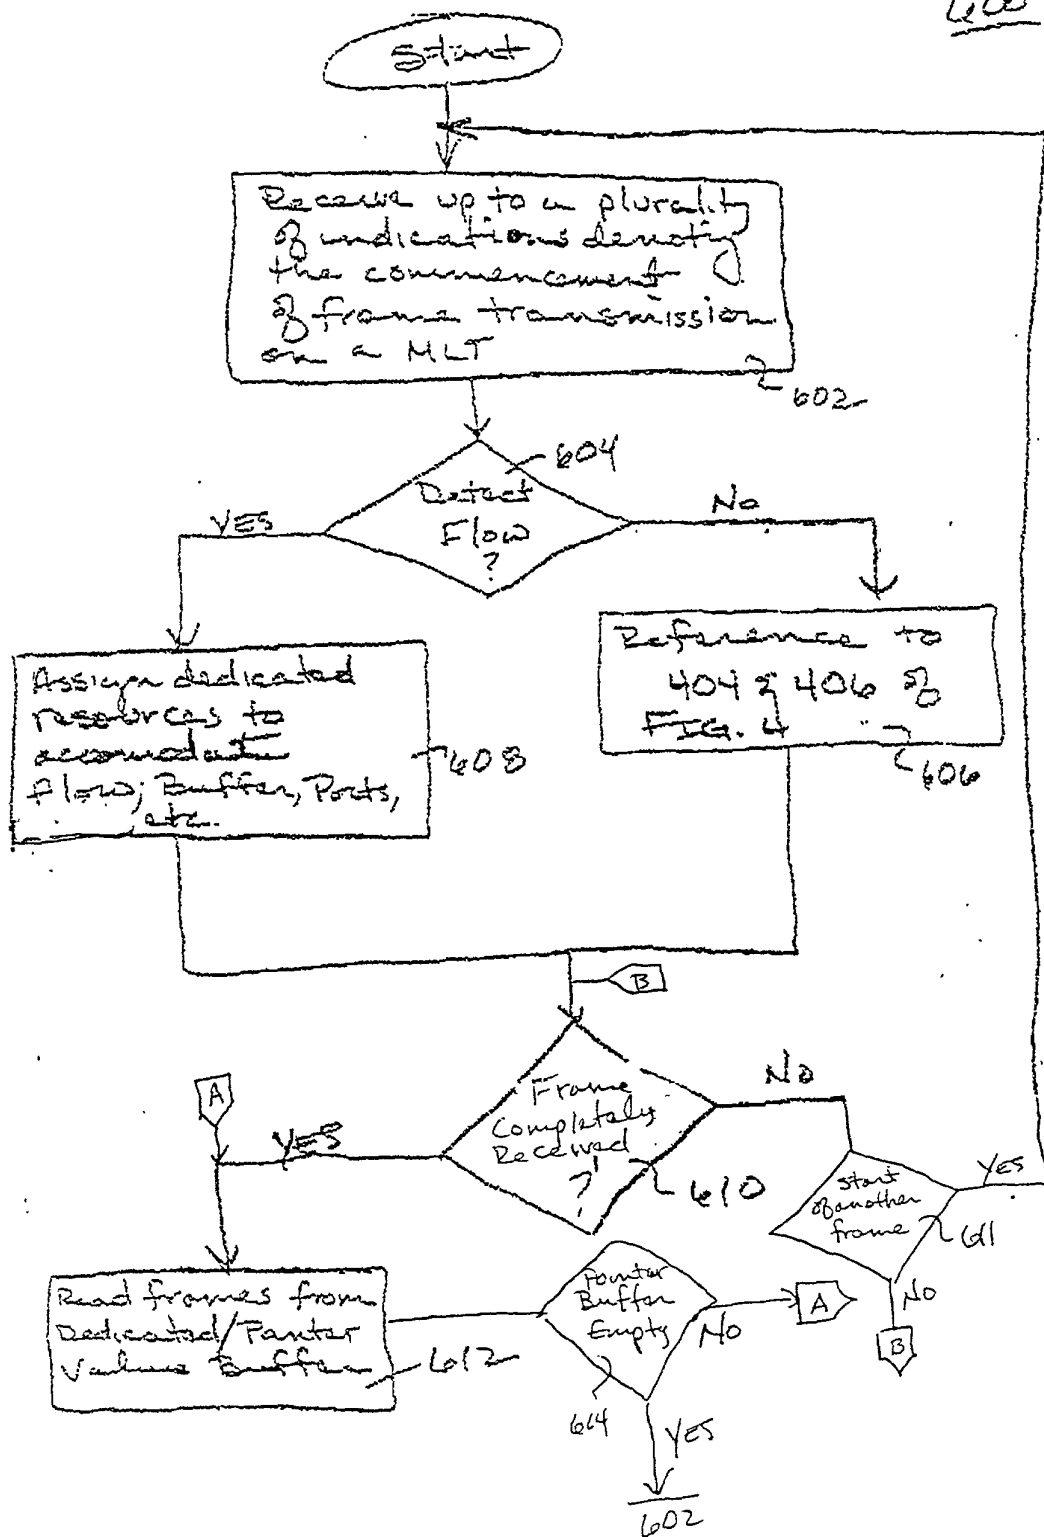 600
Start
Receive up to a plurality
of indications denoting
the commencement
of frame transmission
on a MLT
602
604
Detect
Flow
?
YES
No
Assign dedicated
resources to
accomodate
flow; Buffer, Ports,
etc.
608
Reference to
404 & 406 of
FIG. 4
606
B
A
YES
Frame
Completely
Received
?
610
No
Start
of another
frame
611
YES
No
B
Read frames from
Dedicated/Pointer
Values Buffer
612
Pointer
Buffer
Empty
614
No
A
YES
602